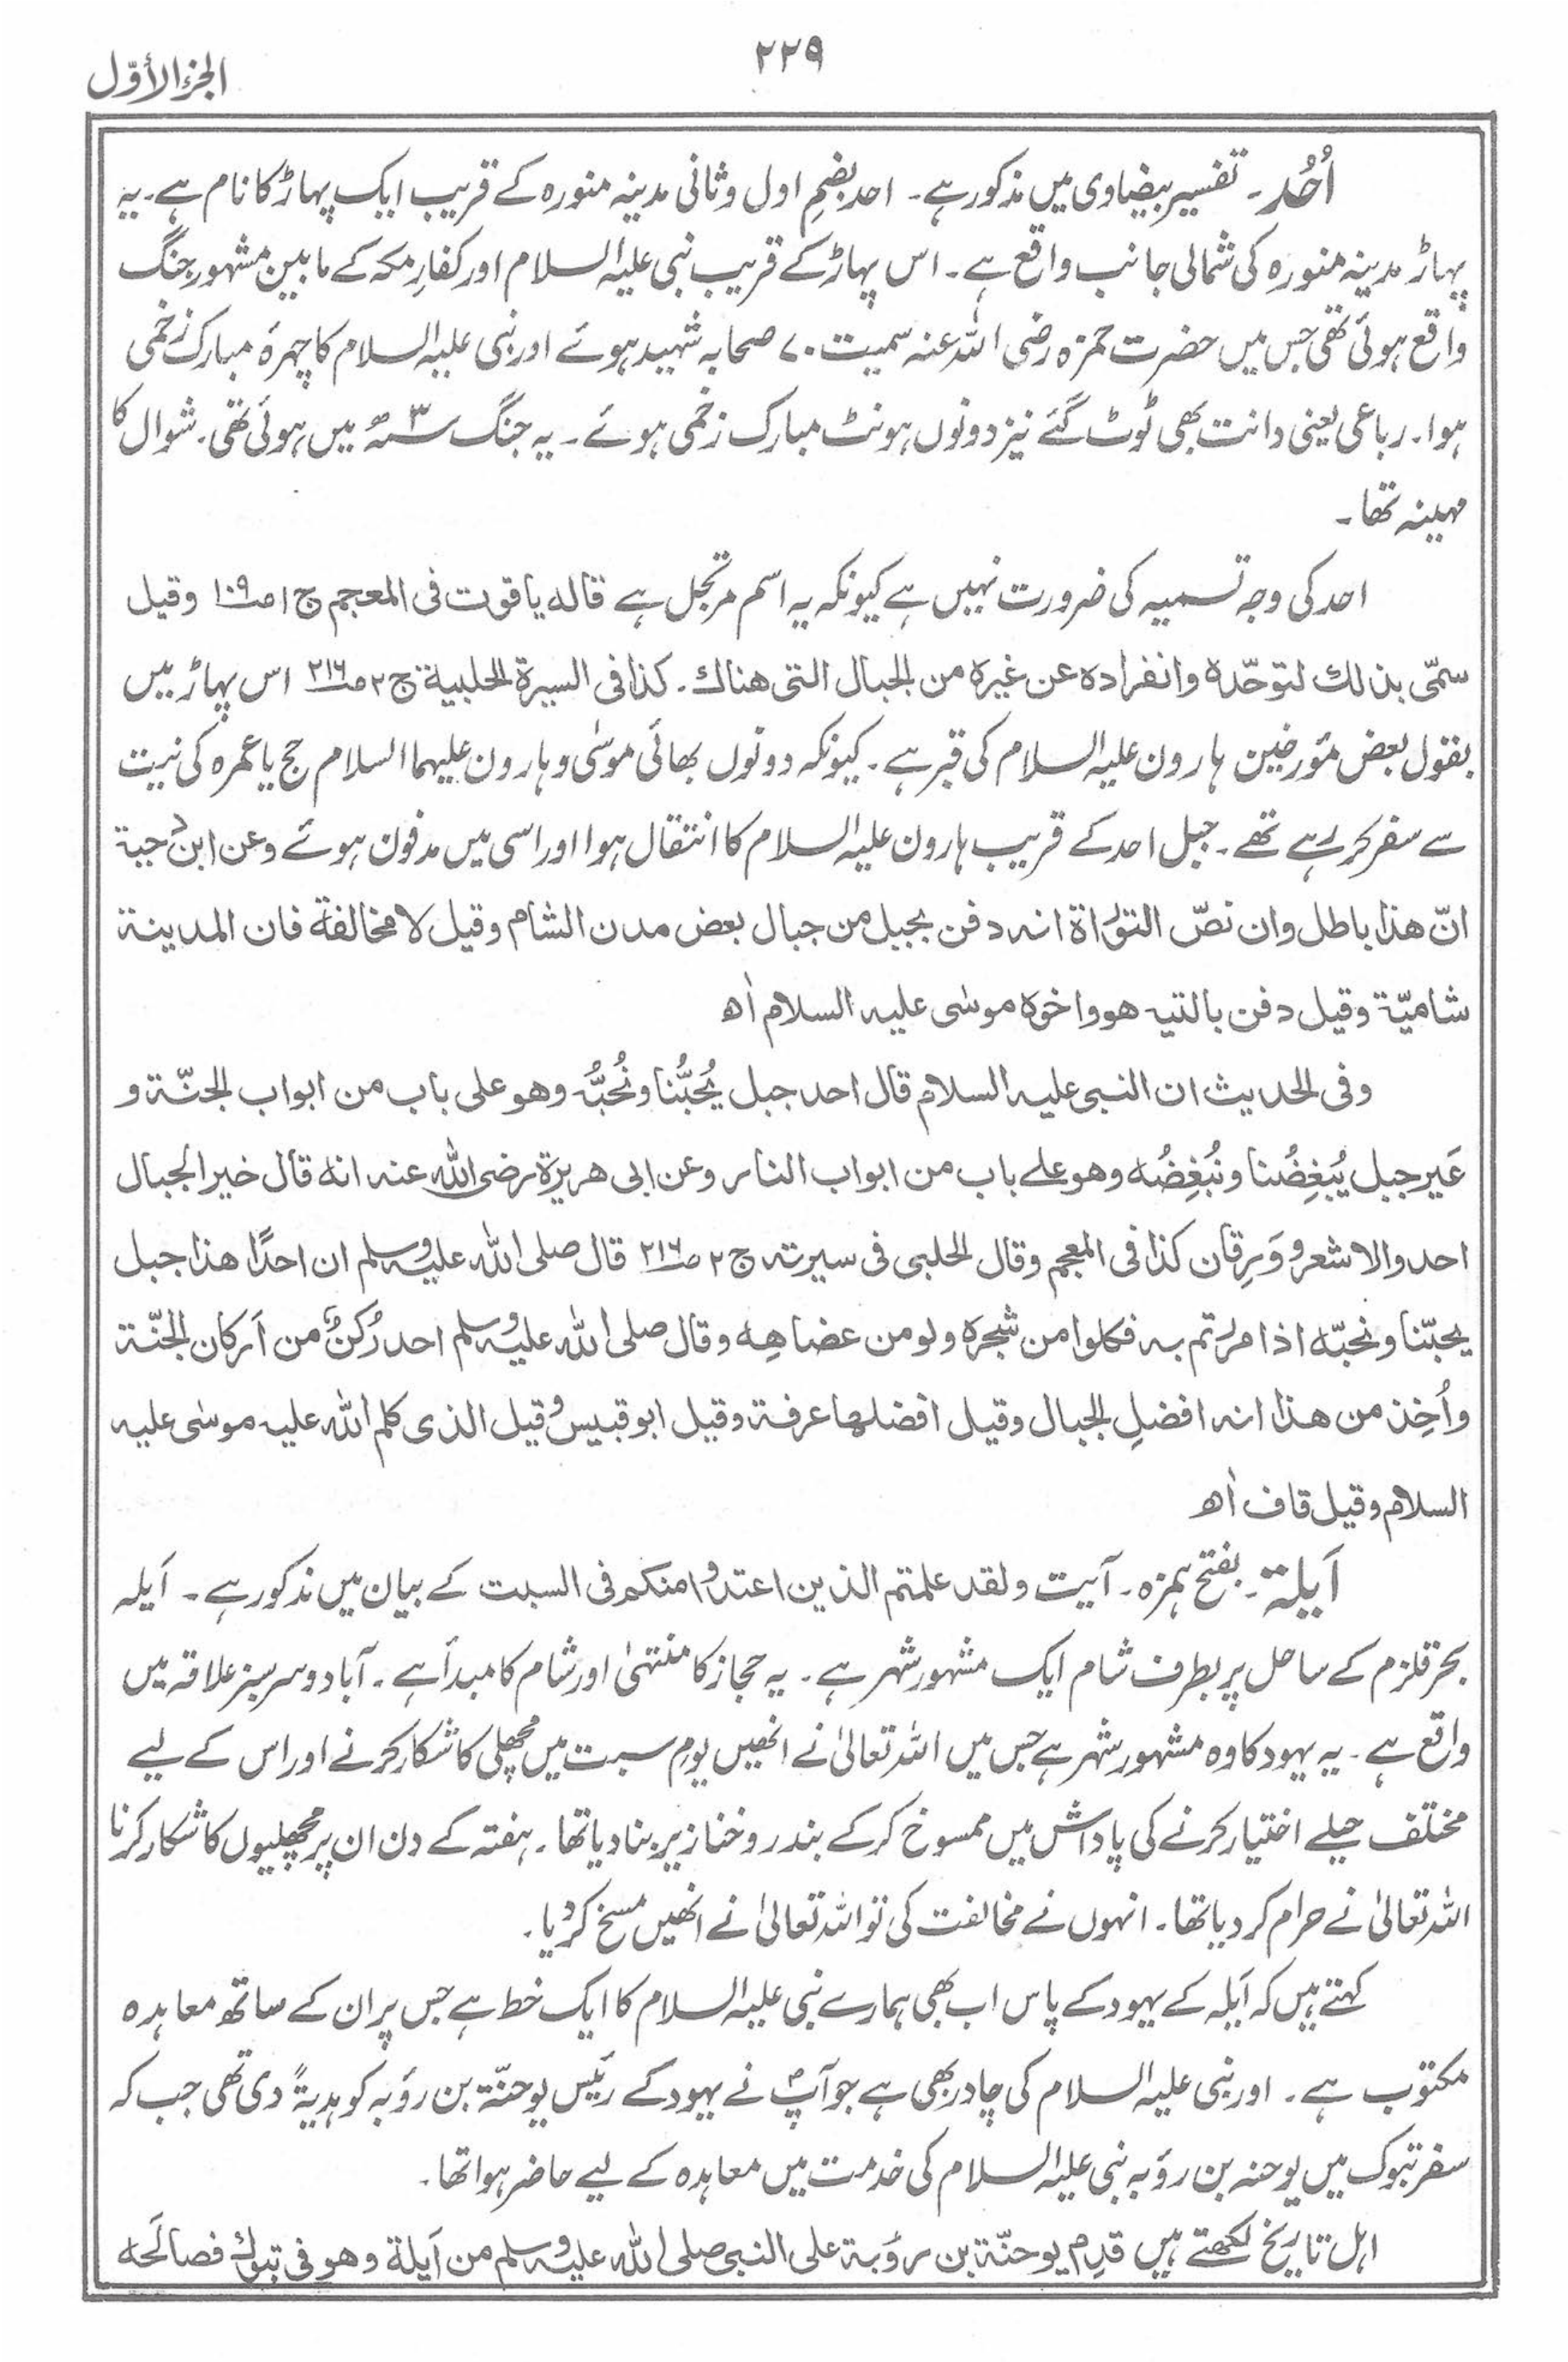 ۲۲۹
الجزء الأوّل
اُحُد۔ تفسیر بیضاوی میں مذکور ہے۔ احد بضمِ اول و ثانی مدینہ منورہ کے قریب ایک پہاڑ کا نام ہے۔ یہ
پہاڑ مدینہ منورہ کی شمالی جانب واقع ہے۔ اس پہاڑ کے قریب نبی علیہ السلام اور کفارِ مکہ کے مابین مشہور جنگ
واقع ہوئی تھی جس میں حضرت حمزہ رضی اللہ عنہ سمیت ۷۰ صحابہ شہید ہوئے اور نبی علیہ السلام کا چہرۂ مبارک زخمی
ہوا۔ رباعی یعنی دانت بھی ٹوٹ گئے نیز دونوں ہونٹ مبارک زخمی ہوئے۔ یہ جنگ ۳ھ میں ہوئی تھی۔ شوال کا
مہینہ تھا۔
احد کی وجہ تسمیہ کی ضرورت نہیں ہے کیونکہ یہ اسم مرتجل ہے قاله ياقوت فى المعجم ج ۱ ص۱۰۹ وقيل
سمّى بذلك لتوحّده وانفراده عن غيره من الجبال التى هناك۔ كذا فى السيرة الحلبية ج ۲ ص۲۱۶ اس پہاڑ میں
بقول بعض مؤرخین ہارون علیہ السلام کی قبر ہے۔ کیونکہ دونوں بھائی موسٰی و ہارون علیہما السلام حج یا عمرہ کی نیت
سے سفر کر رہے تھے۔ جبل احد کے قریب ہارون علیہ السلام کا انتقال ہوا اور اسی میں مدفون ہوئے وعن ابن دحية
انّ هذا باطل وان نصّ التوراة انه دفن بجبل من جبال بعض مدن الشام وقيل لا مخالفة فان المدينة
شاميّة وقيل دفن بالتيه هو واخوه موسٰى عليه السلام اھ
وفى الحديث ان النبى عليه السلام قال احد جبل يُحبُّنا ونُحبُّه وهو على باب من ابواب الجنّة و
عَير جبل يُبغِضُنا ونُبغِضُه وهو على باب من ابواب النار وعن ابى هريرة رضى الله عنه انه قال خير الجبال
احد والاشعر ووَرِقان كذا فى المعجم وقال الحلبى فى سيرته ج ۲ ص۲۱۶ قال صلى الله عليه وسلم ان احدًا هذا جبل
يحبّنا ونحبّه اذا مررتم به فكلوا من شجره ولو من عضاهِه وقال صلى الله عليه وسلم احد رُكنٌ من اَركان الجنّة
واُخِذ من هذا انه افضلِ الجبال وقيل افضلها عرفة وقيل ابو قبيس وقيل الذى كلم الله عليه موسٰى عليه
السلام وقيل قاف اھ
اَیلة۔ بفتح ہمزہ۔ آیت ولقد علمتم الذين اعتدوا منكم فى السبت کے بیان میں مذکور ہے۔ اَیلہ
بحر قلزم کے ساحل پر بطرف شام ایک مشہور شہر ہے۔ یہ حجاز کا منتہیٰ اور شام کا مبدأ ہے۔ آباد و سرسبز علاقہ میں
واقع ہے۔ یہ یہود کا وہ مشہور شہر ہے جس میں اللہ تعالیٰ نے انھیں یومِ سبت میں مچھلی کا شکار کرنے اور اس کے لیے
مختلف حیلے اختیار کرنے کی پاداش میں ممسوخ کر کے بندر و خنازیر بنا دیا تھا۔ ہفتہ کے دن ان پر مچھلیوں کا شکار کرنا
اللہ تعالیٰ نے حرام کر دیا تھا۔ انہوں نے مخالفت کی تو اللہ تعالیٰ نے انھیں مسخ کر دیا۔
کہتے ہیں کہ اَیلہ کے یہود کے پاس اب بھی ہمارے نبی علیہ السلام کا ایک خط ہے جس پر ان کے ساتھ معاہدہ
مکتوب ہے۔ اور نبی علیہ السلام کی چادر بھی ہے جو آپؐ نے یہود کے رئیس یوحنّۃ بن رؤبہ کو ہدیۃً دی تھی جب کہ
سفر تبوک میں یوحنہ بن رؤبہ نبی علیہ السلام کی خدمت میں معاہدہ کے لیے حاضر ہوا تھا۔
اہل تاریخ لکھتے ہیں قدِم يوحنّة بن رؤبة على النبى صلى الله عليه وسلم من اَيلة وهو فى تبوك فصالَحه